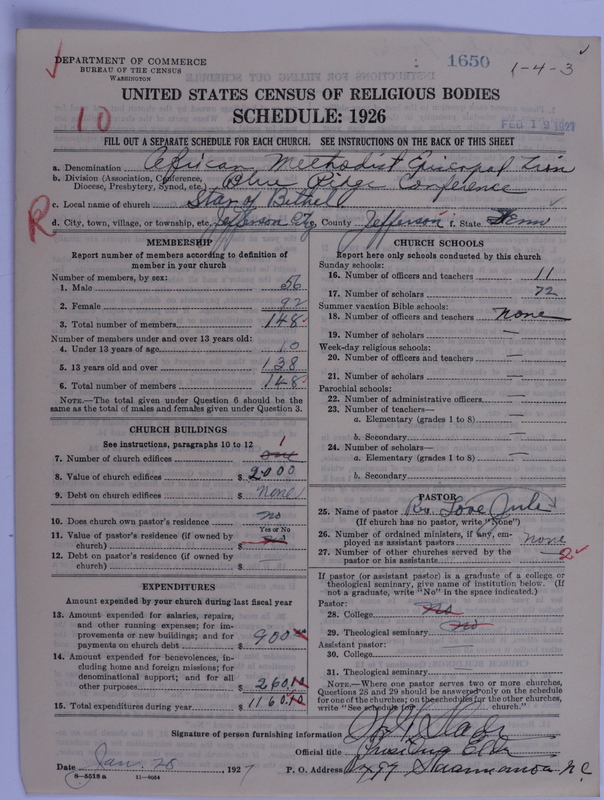 DEPARTMENT OF COMMERCE
BUREAU OF THE CENSUS
WASHINGTON
1650
1-4-3
UNITED STATES CENSUS OF RELIGIOUS BODIES
SCHEDULE: 1926
10
FEB 19 1927
FILL OUT A SEPARATE SCHEDULE FOR EACH CHURCH. SEE INSTRUCTIONS ON THE BACK OF THIS SHEET
a. Denomination African Methodist Episcopal Zion
b. Division (Association, Conference, Diocese, Presbytery, Synod, etc.) Blue Ridge Conference
c. Local name of church Star of Bethel
R
d. City, town, village, or township, etc. Jefferson City, County Jefferson f. State Tenn
MEMBERSHIP
Report number of members according to definition of
member in your church
Number of members, by sex:
1. Male 56
2. Female 92
3. Total number of members 148
Number of members under and over 13 years old:
4. Under 13 years of age 10
5. 13 years old and over 138
6. Total number of members 148
NOTE.—The total given under Question 6 should be
same as the total of males and females given under Question 3.
CHURCH BUILDINGS
See instructions, paragraphs 10 to 12
1
7. Number of church edifices one
8. Value of church edifices $ 2000
9. Debt on church edifices $ None
10. Does church own pastor's residence no
Yes or No
11. Value of pastor's residence (if owned by
church) $
12. Debt on pastor's residence (if owned by
church) $
EXPENDITURES
Amount expended by your church during last fiscal year
13. Amount expended for salaries, repairs,
and other running expenses; for im-
provements or new buildings; and for
payments on church debt $ 900
14. Amount expended for benevolences, in-
cluding home and foreign missions; for
denominational support; and for all
other purposes $ 260.10
15. Total expenditures during year $ 1160.10
CHURCH SCHOOLS
Report here only schools conducted by this church
Sunday schools:
16. Number of officers and teachers 11
17. Number of scholars 72
Summer vacation Bible schools:
18. Number of officers and teachers none
19. Number of scholars —
Week-day religious schools:
20. Number of officers and teachers —
21. Number of scholars —
Parochial schools:
22. Number of administrative officers —
23. Number of teachers—
a. Elementary (grades 1 to 8) —
b. Secondary —
24. Number of scholars—
a. Elementary (grades 1 to 8) —
b. Secondary
PASTOR
25. Name of pastor Rev Love
(If church has no pastor, write "None")
26. Number of ordained ministers, if any, em-
ployed as assistant pastors none
27. Number of other churches served by the
pastor or his assistants 2
If pastor (or assistant pastor) is a graduate of a college or
theological seminary, give name of institution below. (If
not a graduate, write "No" in the space indicated.)
Pastor:
28. College No
29. Theological seminary no
Assistant pastor:
30. College
31. Theological seminary
NOTE.—Where one pastor serves two or more churches,
Questions 28 and 29 should be answered only on the schedule
for one of the churches; on the schedules for the other churches,
write "See schedule for church."
Signature of person furnishing information
Official title Presiding Elder
Date Jan. 20, 1927
P. O. Address Swannanoa N.C.
8—5518a 11—9064